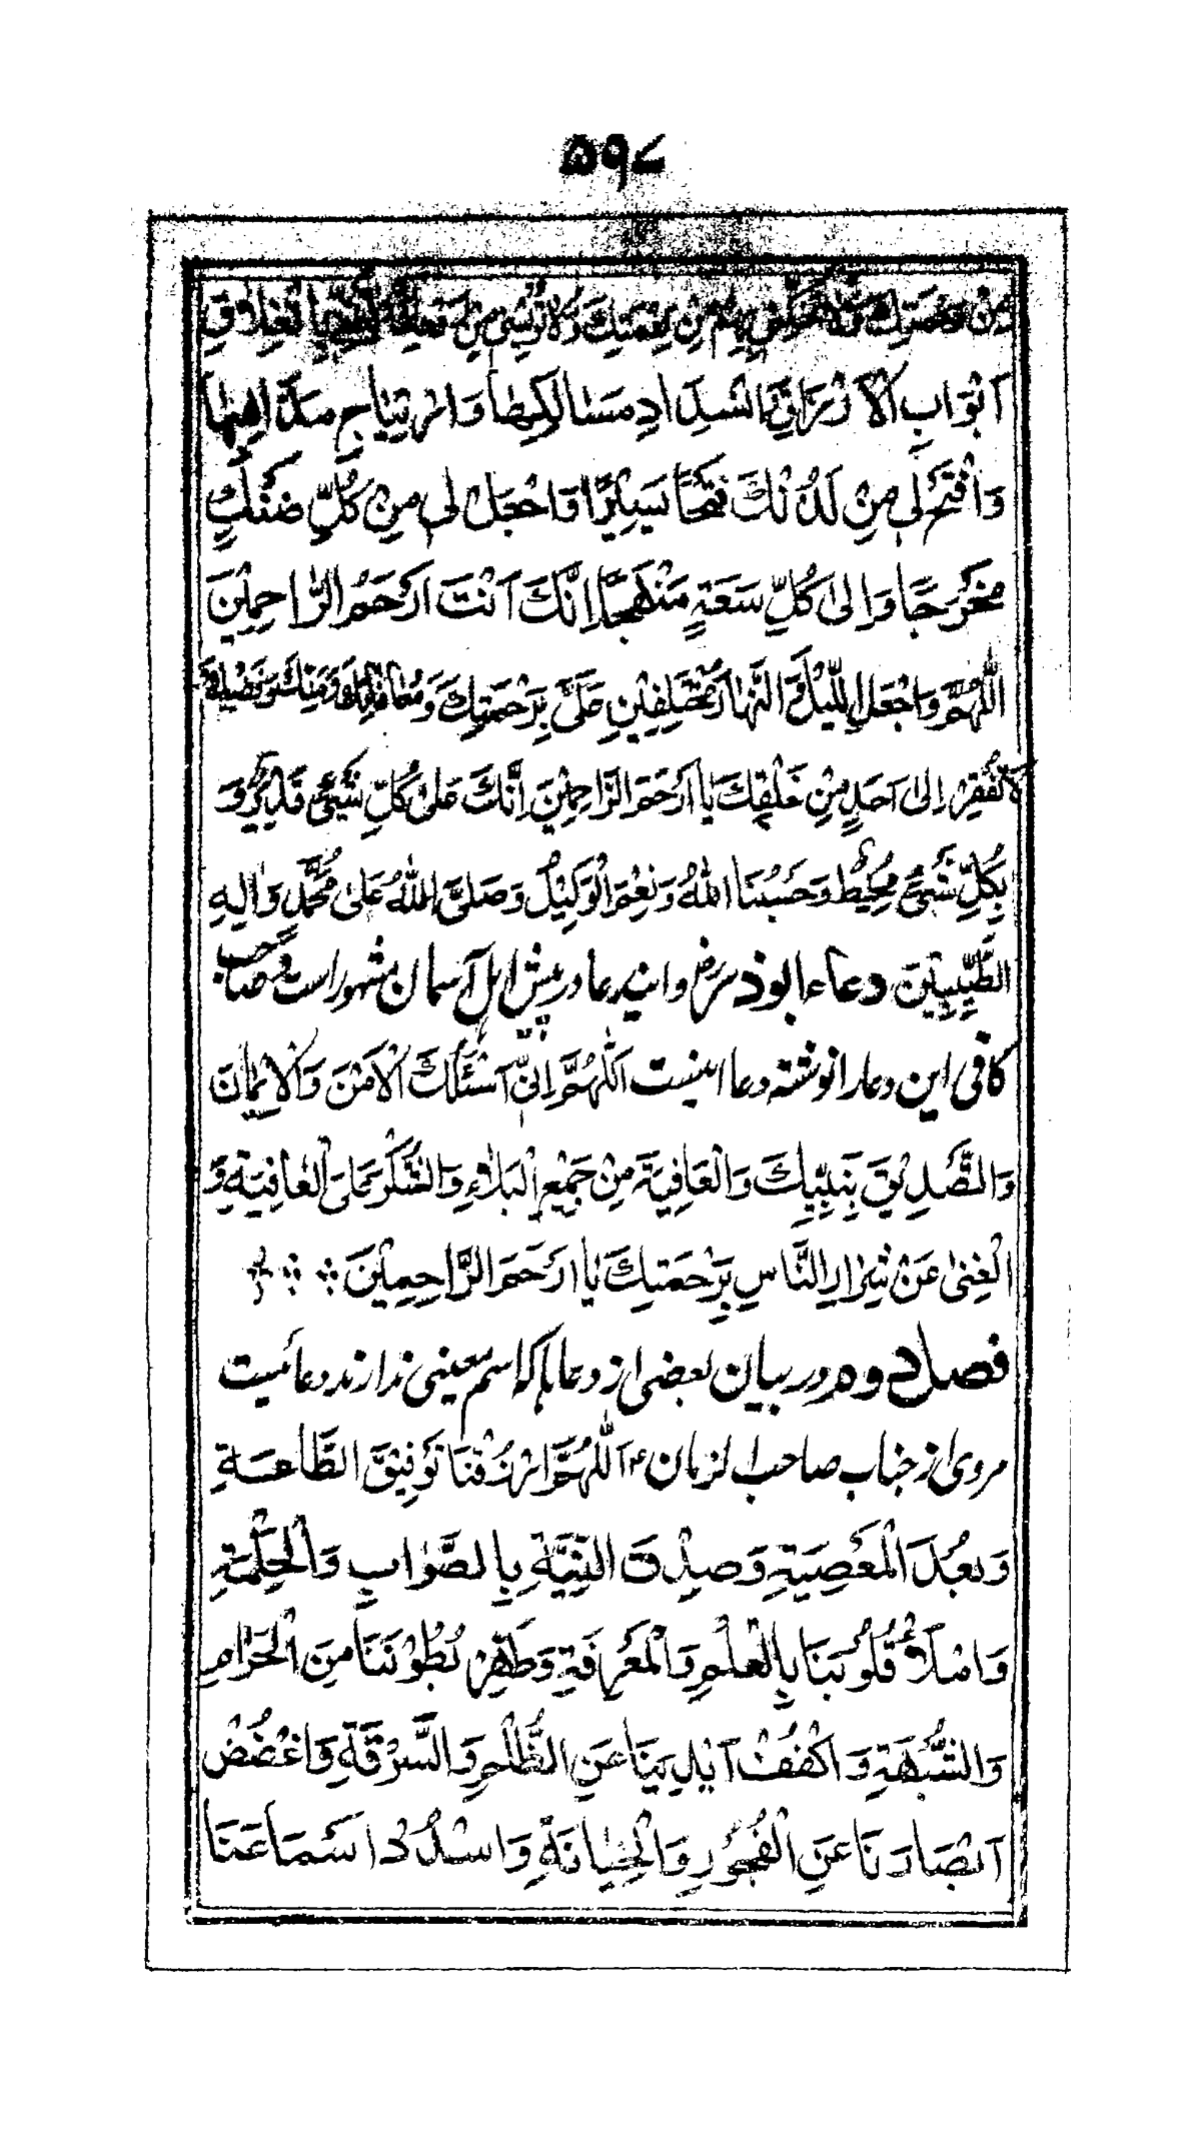 ۵۹۷
مِنْ نِعْمَتِكَ وَلَا تُؤْيِسْنِیْ مِنْ
اَبْوَابِ الْاَرْزَاقِ اِنْسِدَادِ مَسَالِكِهَا وَارْتِتَاجِ مَذَاهِبِهَا
وَافْتَحْ لِیْ مِنْ لَدُنْكَ فَتْحًا يَسِيْرًا وَاجْعَلْ لِیْ مِنْ كُلِّ ضَنْكٍ
مَخْرَجًا وَاِلٰی كُلِّ سَعَةٍ مَنْهَجًا اِنَّكَ اَنْتَ اَرْحَمُ الرَّاحِمِيْنَ
اَللّٰهُمَّ وَاجْعَلِ اللَّيْلَ وَالنَّهَارَ مُخْتَلِفَيْنِ عَلَیَّ بِرَحْمَتِكَ وَمُعَافَاتِكَ وَمَنِّكَ وَفَضْلِكَ وَ
لَا تُفْقِرْنِیْ اِلٰی اَحَدٍ مِنْ خَلْقِكَ يَا اَرْحَمَ الرَّاحِمِيْنَ اِنَّكَ عَلٰی كُلِّ شَیْءٍ قَدِيْرٌ وَ
بِكُلِّ شَیْءٍ مُحِيْطٌ وَحَسْبُنَا اللّٰهُ وَنِعْمَ الْوَكِيْلُ وَصَلَّی اللّٰهُ عَلٰی مُحَمَّدٍ وَاٰلِهِ
الطَّيِّبِيْنَ دعاء ابوذر رض و این دعا در پیش اہل آسمان مشہور است و صاحب
کافی این دعا را نوشتہ دعا اینست اَللّٰهُمَّ اِنِّیْ اَسْئَلُكَ الْاَمْنَ وَالْاِيْمَانَ
وَالتَّصْدِيْقَ بِنَبِيِّكَ وَالْعَافِيَةَ مِنْ جَمِيْعِ الْبَلَاءِ وَالشُّكْرَ عَلَی الْعَافِيَةِ وَ
الْغِنٰی عَنْ شِرَارِ النَّاسِ بِرَحْمَتِكَ يَا اَرْحَمَ الرَّاحِمِيْنَ
فصل دوم در بیان بعضی از دعاہا کہ اسم معینی ندارند دعائیست
مروی از جناب صاحب الزمان ع اَللّٰهُمَّ ارْزُقْنَا تَوْفِيْقَ الطَّاعَةِ
وَبُعْدَ الْمَعْصِيَةِ وَصِدْقَ النِّيَّةِ بِالصَّوَابِ وَالْحِكْمَةِ
وَامْلَأْ قُلُوْبَنَا بِالْعِلْمِ وَالْمَعْرِفَةِ وَطَهِّرْ بُطُوْنَنَا مِنَ الْحَرَامِ
وَالشُّبْهَةِ وَاكْفُفْ اَيْدِيَنَا عَنِ الظُّلْمِ وَالسَّرِقَةِ وَاغْضُضْ
اَبْصَارَنَا عَنِ الْفُجُوْرِ وَالْخِيَانَةِ وَاسْدُدْ اَسْمَاعَنَا